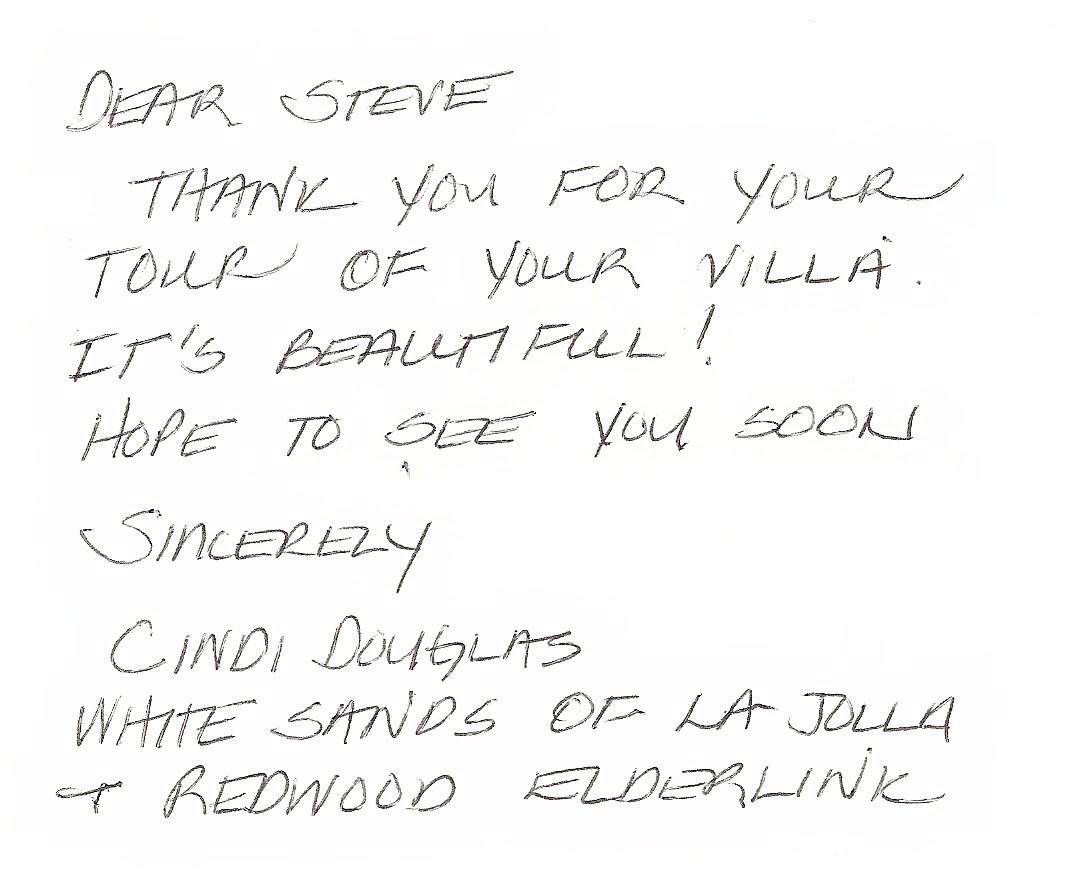 DEAR STEVE
THANK YOU FOR YOUR
TOUR OF YOUR VILLA.
IT'S BEAUTIFUL!
HOPE TO SEE YOU SOON
SINCERELY
CINDI DOUGLAS
WHITE SANDS OF LA JOLLA
+ REDWOOD ELDERLINK